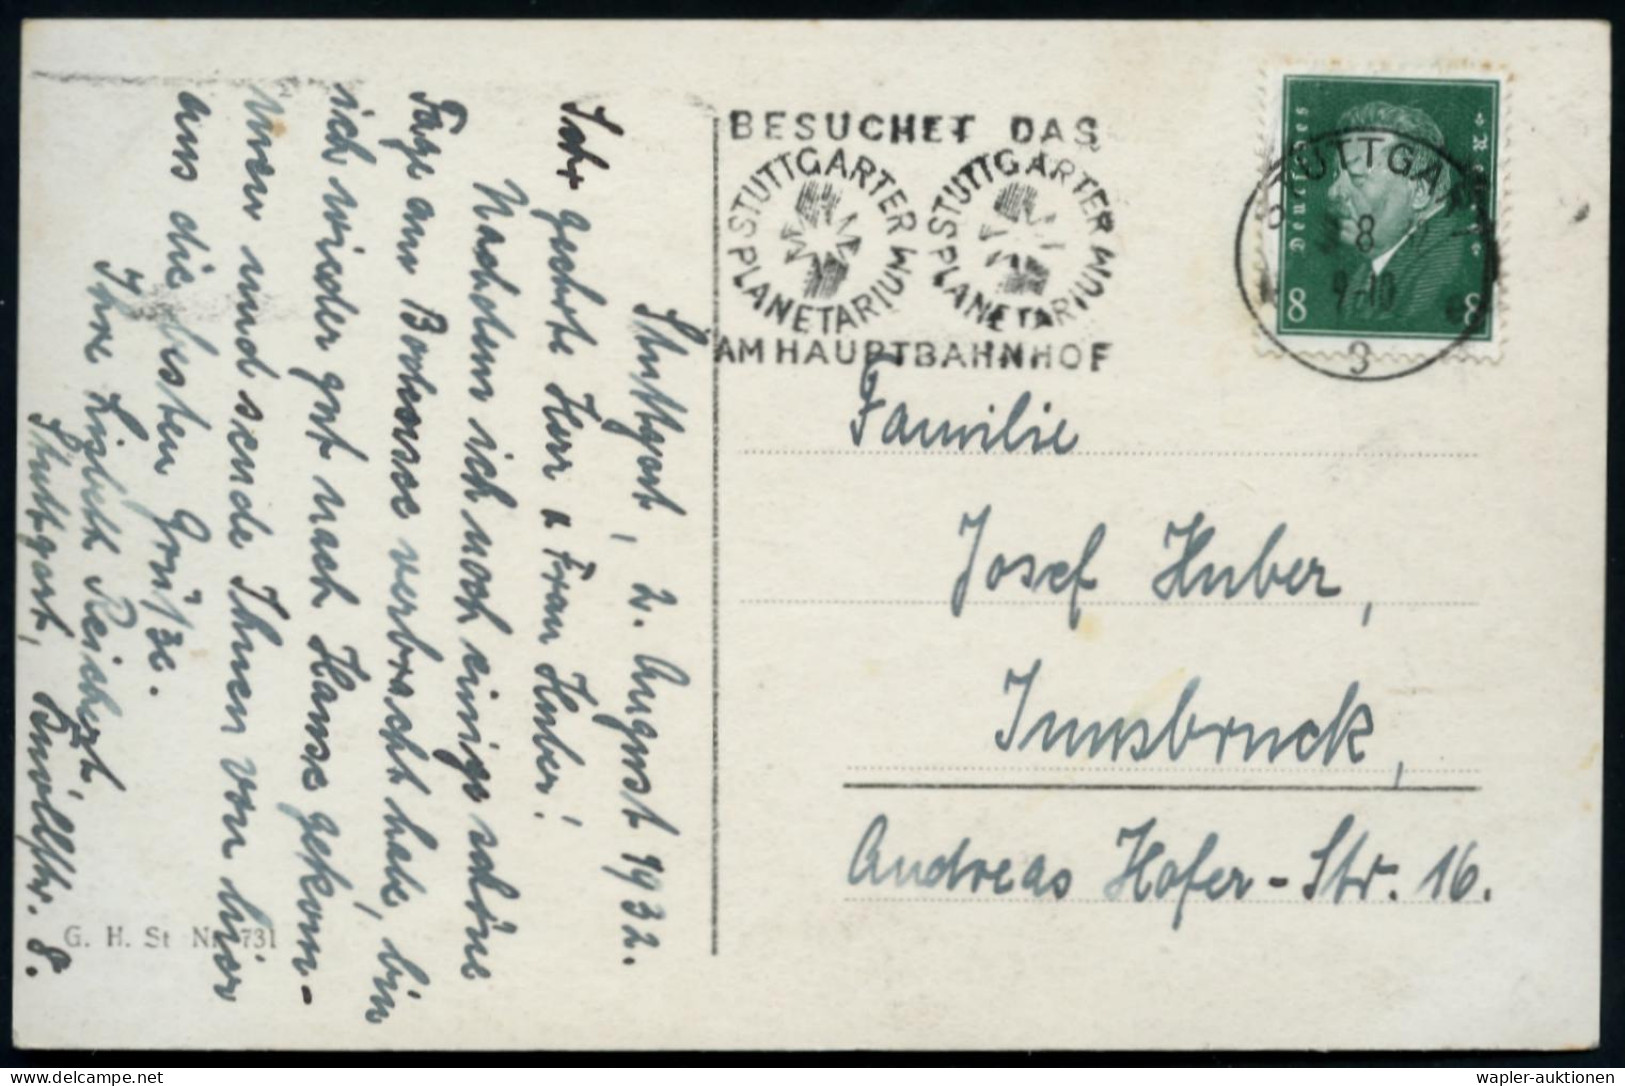 Stuttgart, 2. August 1932.
Sehr geehrte Herr u Frau Huber!
Nachdem ich noch einige schöne
Tage am Bodensee verbracht habe, bin
ich wieder gut nach Hause gekom-
men und sende Ihnen von hier
aus die besten Grüsse.
Ihre Liesbeth Reichert,
Stuttgart,
8.
G. H. St Nr. 731
BESUCHET DAS
STUTTGARTER PLANETARIUM
STUTTGARTER PLANETARIUM
AM HAUPTBAHNHOF
Deutsches
8
8
STUTTGART
8
9-10
3
Familie
Josef Huber,
Innsbruck,
Andreas Hofer-Str. 16.
www.delcampe.net
wapler-auktionen